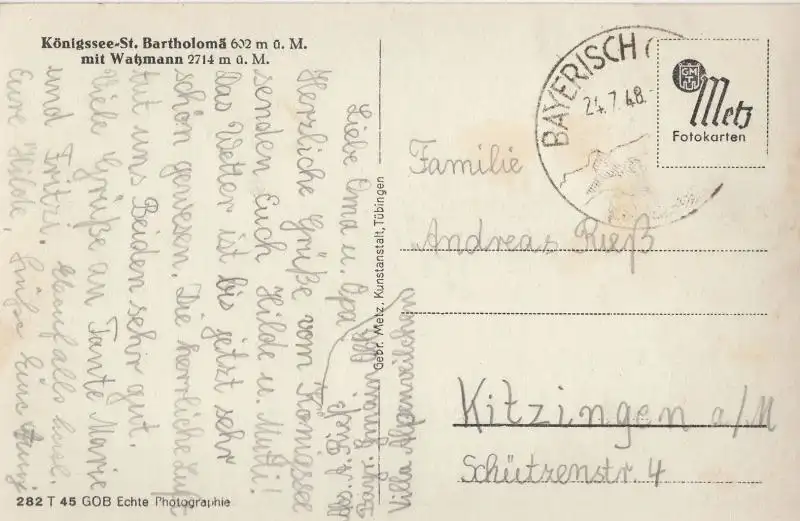 Königssee-St. Bartholomä 602 m ü. M.
mit Watzmann 2714 m ü. M.
Liebe Oma u. Opa
Herzliche Grüße vom Königssee
senden Euch Hilde u. Mutti!
Das Wetter ist bis jetzt sehr
schön gewesen. Die herrliche Luft
tut uns Beiden sehr gut.
Viele Grüße an Tante Marie
und Fritzi.
Eure Hilde,
Villa Alpenveilchen
Gebr. Metz, Kunstanstalt, Tübingen
282 T 45 GOB Echte Photographie
BAYERISCH
24.7.48.
GMT
Metz
Fotokarten
Familie
Andreas Rieß
Kitzingen a/M
Schützenstr. 4